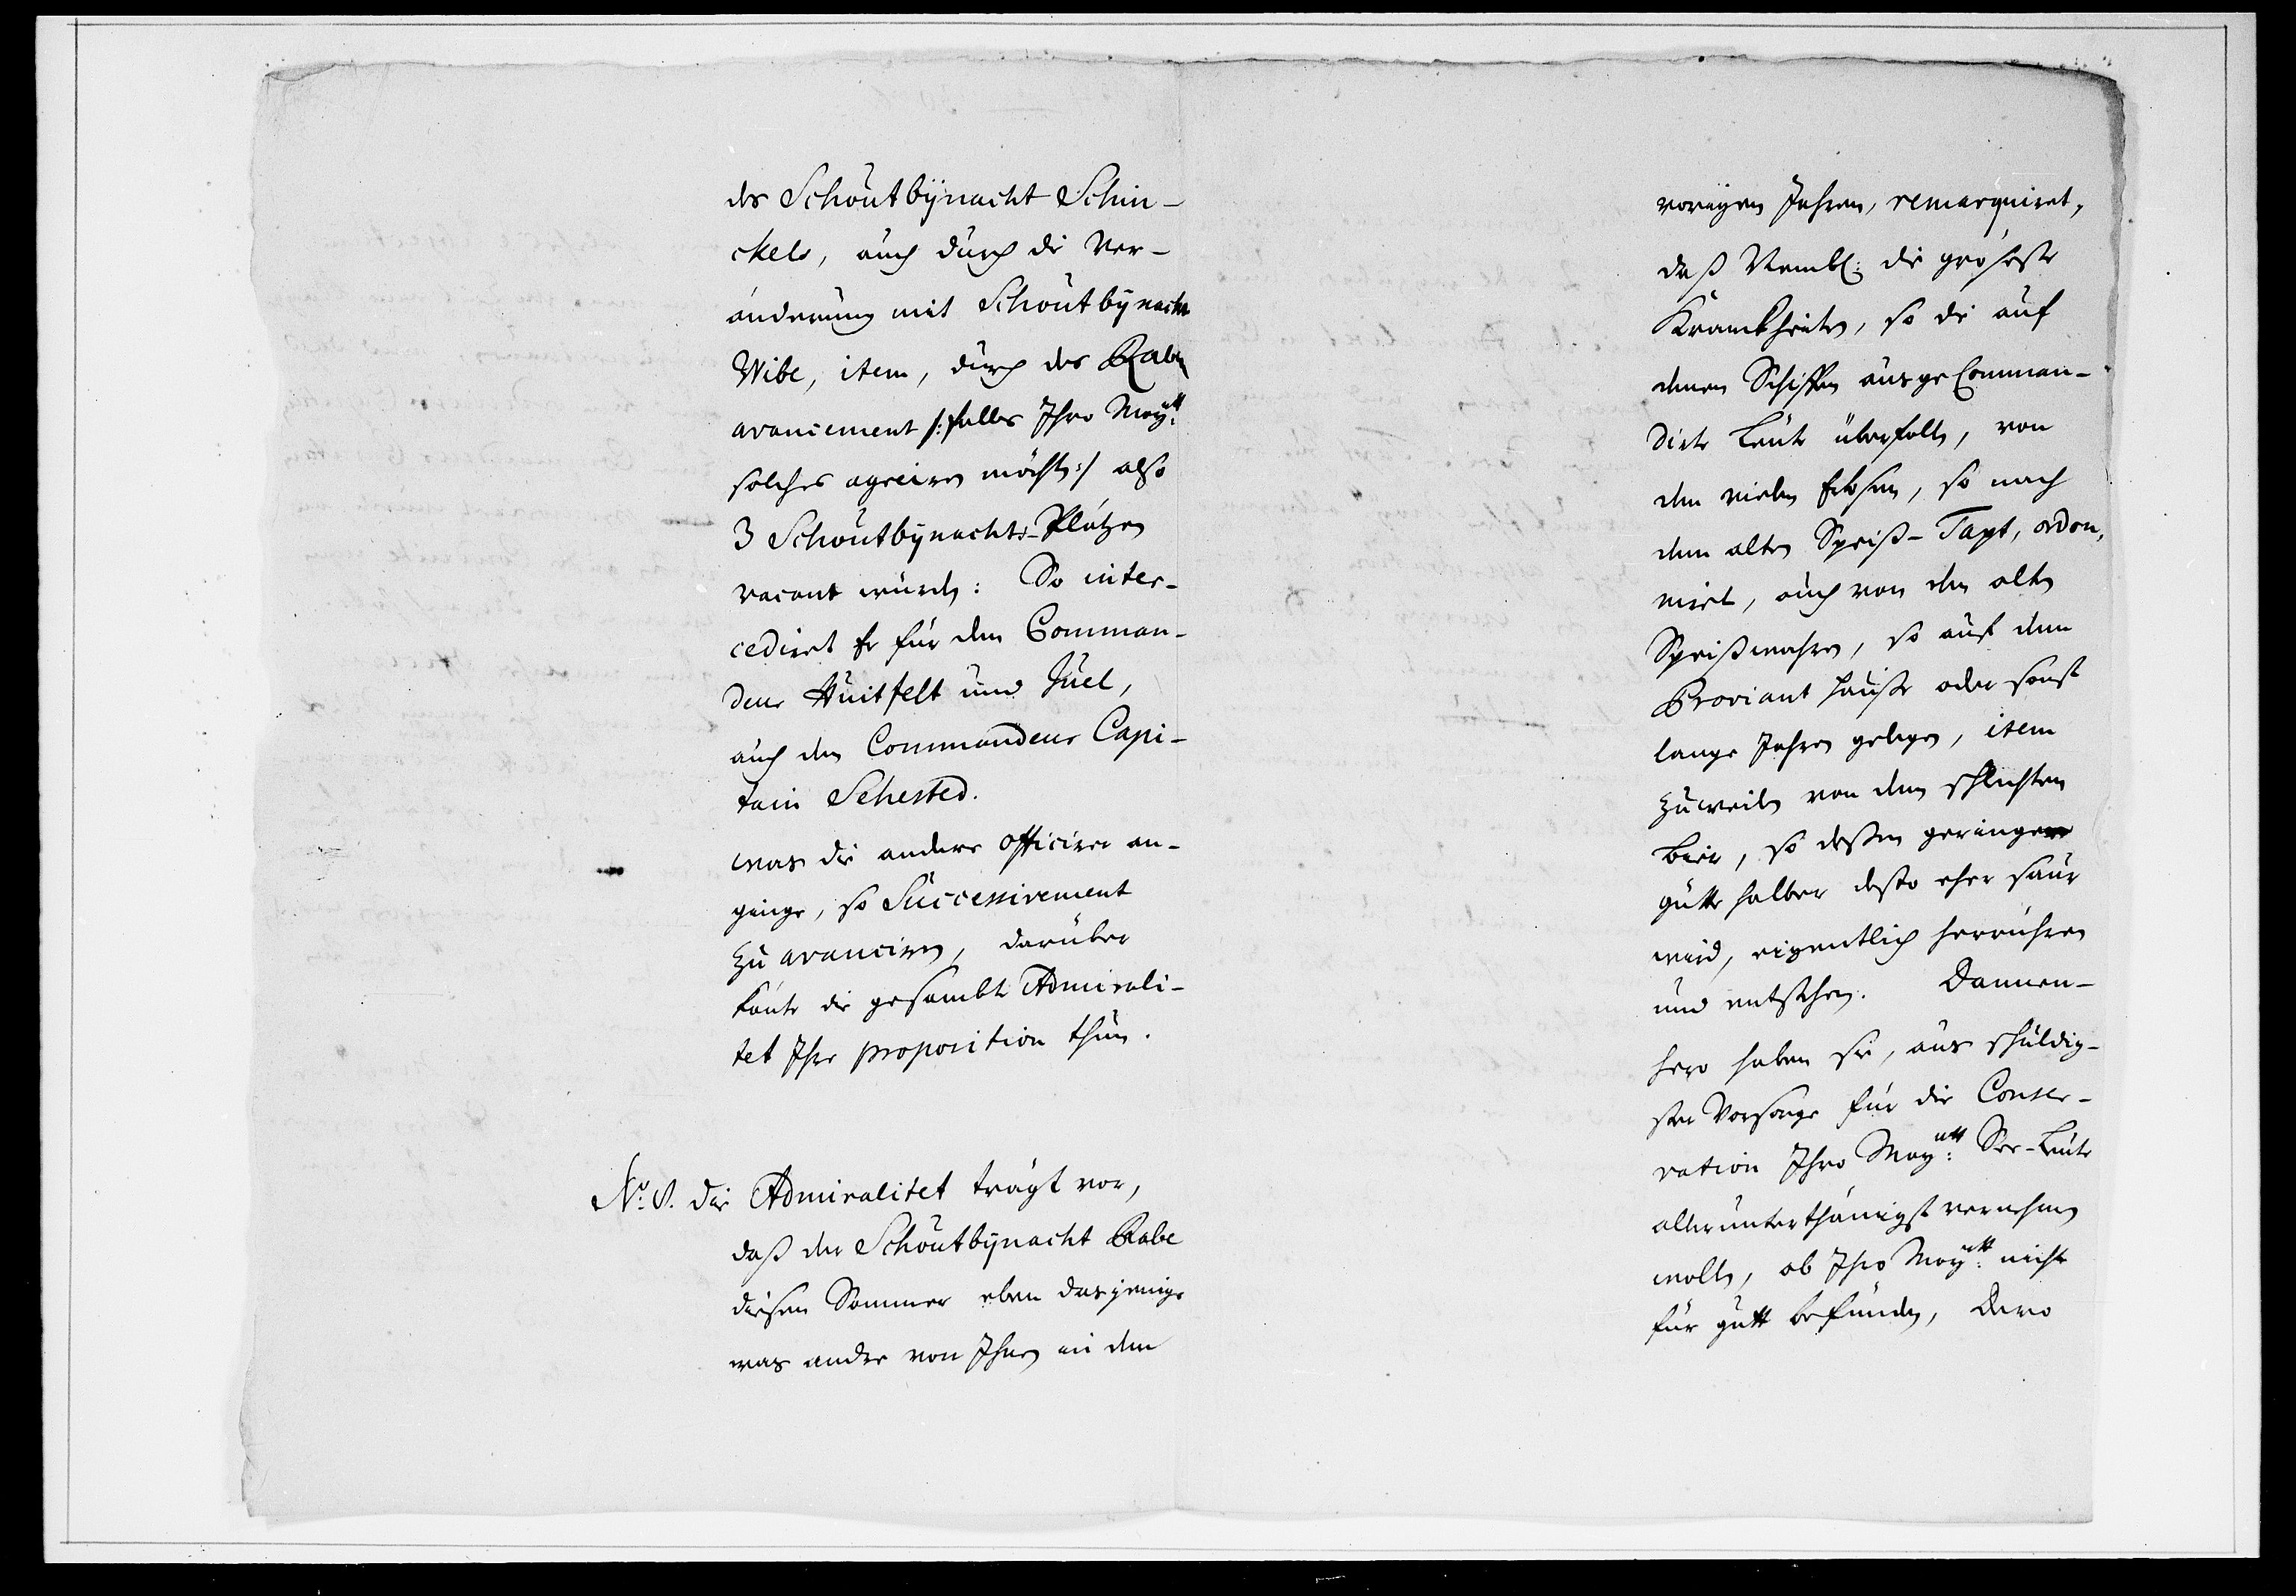 des Schoutbÿnacht Schin-
ckels, auch durch die Ver-
änderung mit Schoutbÿnacht
Wibe, item, durch des Raben
avancement /: falls Ihro Maÿtt:
solches agreiren möchte :/ also
3 Schoutbÿnachts-Plätzen
vacant würden: So inter-
cediret Er für den Comman-
deur Huitfelt und Juel,
auch den Commandeur Capi-
tain Sehested.
was die andere Officirer an-
ginge, so Successivement
zu avanciren, darüber
könte die gesambte Admirali-
tet Ihre proposition thun.
No. 8. die Admiralitet trägt vor,
daß der Schoutbÿnacht Rabe
diesen Sommer eben dasjenige
was andere von Ihnen in den
vorigen Jahren, remarquiret,
daß Nembl: die gröseste
Kranckheiten, so die auf
denen Schiffen ausge Comman-
dirte Leute überfalle, von
den vielen Erbsen, so nach
dem alten Speiß-Taxt, ordon,
niret, auch von den alten
Speißwahren, so auf dem
Proviant Hause oder sonst
lange Jahren gelegen, item
zuweilen von dem schlechten
Bier, so dessen geringen
gütte halber desto eher saur
wird, eigentlich herrühren
und entstehen. Dannen-
hero haben sie, aus schuldig-
ster Vorsorge für die Conser-
vation Ihro Maÿtt: See-Leute
allerunterthänigst vernehmen
wollen, ob Ihro Maÿtt: nicht
für gutt befünden, Dero